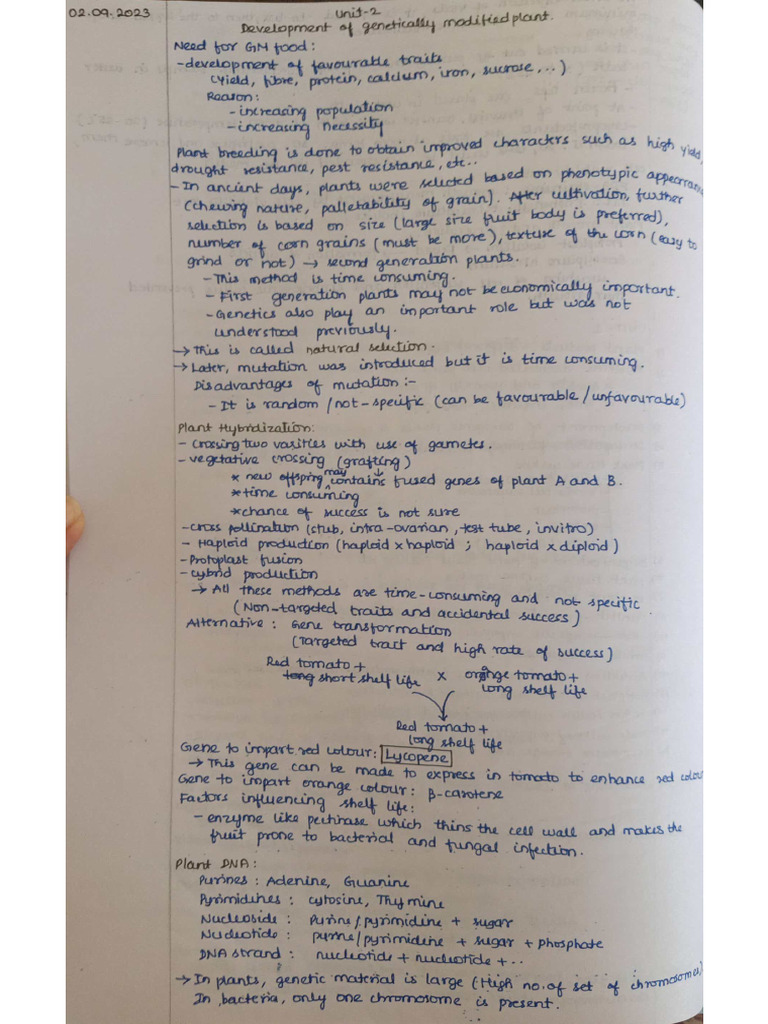 02.09.2023
Unit-2
Development of genetically modified plant.
Need for GM food:
-development of favourable traits
(yield, fibre, protein, calcium, iron, sucrose, ...)
Reason:
-increasing population
-increasing necessity
Plant breeding is done to obtain improved characters such as high yield,
drought resistance, pest resistance, etc..
-In ancient days, plants were selected based on phenotypic appearance
(chewing nature, palletability of grain). After cultivation, further
selection is based on size (large size fruit body is preferred),
number of corn grains (must be more), texture of the corn (easy to
grind or not) → second generation plants.
-This method is time consuming.
-First generation plants may not be economically important.
-Genetics also play an important role but was not
understood previously.
→ This is called natural selection.
→ Later, mutation was introduced but it is time consuming.
Disadvantages of mutation:-
-It is random/not-specific (can be favourable/unfavourable)
Plant Hybridization:
-crossing two varities with use of gametes.
-vegetative crossing (grafting)
* new offspring may contains fused genes of plant A and B.
*time consuming
*chance of success is not sure
-cross pollination (stub, intra-ovarian, test tube, invitro)
- Haploid production (haploid x haploid ; haploid x diploid)
-Protoplast fusion
-cybrid production
→ All these methods are time-consuming and not specific
(Non-targeted traits and accidental success)
Alternative: Gene transformation
(Targeted trait and high rate of success)
Red tomato + x orange tomato+
long short shelf life long shelf life
Red tomato +
long shelf life
Gene to impart red colour: Lycopene
→ This gene can be made to express in tomato to enhance red colour
Gene to impart orange colour: β-carotene
Factors influencing shelf life:
- enzyme like pectinase which thins the cell wall and makes the
fruit prone to bacterial and fungal infection.
Plant DNA:
Purines: Adenine, Guanine
Pyrimidines: cytosine, Thymine
Nucleoside: Purine/pyrimidine + sugar
Nucleotide: purine/pyrimidine + sugar + phosphate
DNA strand: nucleotide + nucleotide + ..
→ In plants, genetic material is large (High no. of set of chromosomes)
In bacteria, only one chromosome is present.